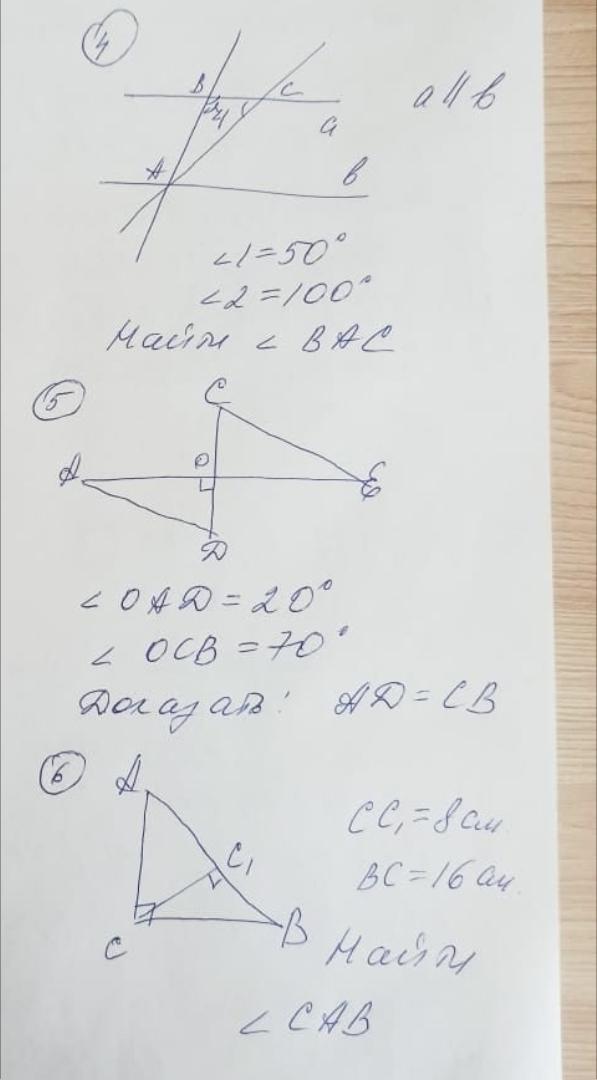 4
B C
a ∥ b
a
A
b
∠1=50°
∠2=100°
Найти ∠ BAC
5
C
A O
D
∠ OAD = 20°
∠ OCB = 70°
Доказать: AD = CB
6
A
CC₁=8см.
C₁
BC=16см.
C B
Найти
∠ CAB